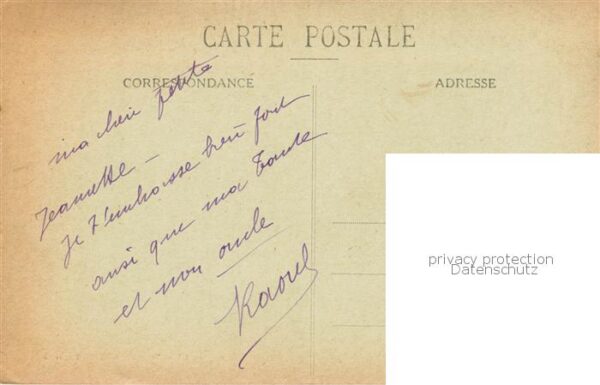 CARTE POSTALE
CORRESPONDANCE
ADRESSE
ma chère petite
Jeannette –
je t'embrasse bien fort
ainsi que ma tante
et mon oncle
Raoul
privacy protection
Datenschutz